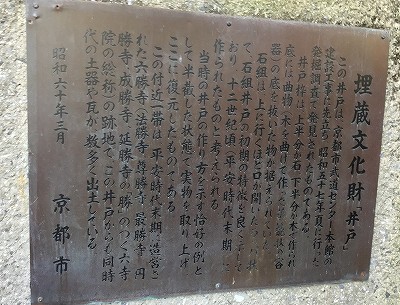 埋蔵文化財「井戸」
この井戸は、京都市武道センター本館の
建設工事に先立ち、昭和五十七年夏に行った
発掘調査で発見されたものである。
井戸枠は、上半分が石、下半分が木で作られ
底には曲物(木を曲げて作った
器)の底を抜いた物が据えられていた。
石組は、上に行くほど口が開いて
て、石組井戸の初期の特徴を良く示して
おり、十二世紀頃(平安時代末期)に
作られたものと考えられる。
当時の井戸の作り方を示す恰好の例と
して半裁した状態で実物を取り上げ
ここに復元したものである。
この付近一帯は、平安時代末期に造営さ
れた六勝寺(法勝寺、尊勝寺、最勝寺、円
勝寺、成勝寺、延勝寺の「勝」のつく六寺
院の総称)の跡地で、この井戸からも同時
代の土器や瓦が数多く出土している。
昭和六十年三月
京都市